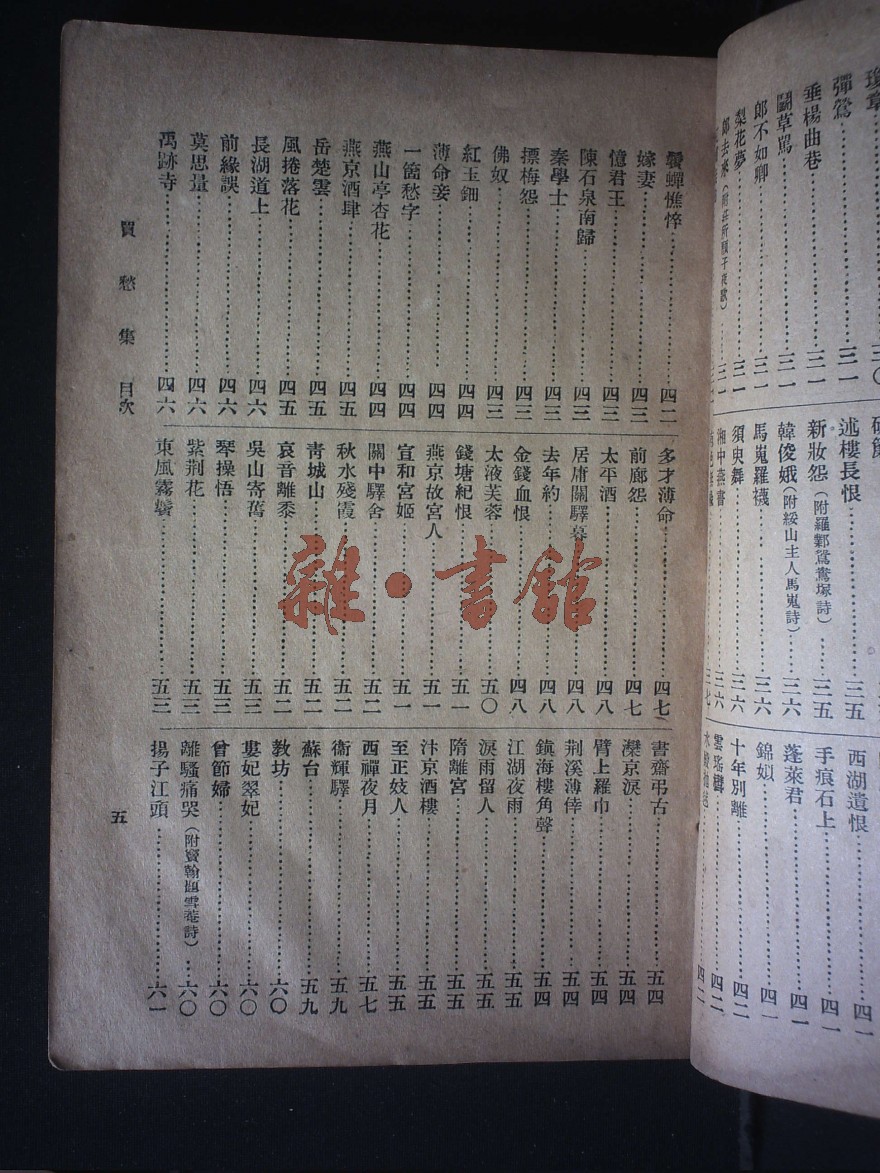 彈鶯……三一
垂楊曲巷……三一
鬭草罵……三一
郎不如卿……三一
梨花夢……三一
述樓長恨……三五
新妝怨(附羅鄴鴛鴦塚詩)……三五
韓俊娥(附綏山主人馬嵬詩)……三六
馬嵬羅襪……三六
須臾舞……三六
湘中燕書……三六
西湖遺恨……四一
手痕石上……四一
蓬萊君……四一
錦姒……四一
十年別離……四二
雲瑤……四二
鬢蟬憔悴……四二
嫁妻……四三
憶君王……四三
陳石泉南歸……四三
秦學士……四三
摽梅怨……四三
佛奴……四三
紅玉鈿……四四
薄命妾……四四
一箇愁字……四四
燕山亭杏花……四四
燕京酒肆……四五
岳楚雲……四五
風捲落花……四五
長湖道上……四六
前緣誤……四六
莫思量……四六
禹跡寺……四六
多才薄命……四七
前廊怨……四七
太平酒……四八
居庸關驛暮……四八
去年約……四八
金錢血恨……四八
太液芙蓉……五〇
錢塘紀恨……五一
燕京故宮人……五一
宣和宮姬……五一
關中驛舍……五二
秋水殘霞……五二
青城山……五二
哀音離黍……五二
吳山寄舊……五三
琴操悟……五三
紫荆花……五三
東風霧鬢……五三
書齋弔古……五四
灤京淚……五四
臂上羅巾……五四
荆溪薄倖……五四
鎮海樓角聲……五四
江湖夜雨……五五
淚雨留人……五五
隋離宮……五五
汴京酒樓……五五
至正妓人……五五
西禪夜月……五七
衞輝驛……五九
蘇台……五九
教坊……六〇
婁妃翠妃……六〇
曾節婦……六〇
離騷痛哭(附竇翰題雪菴詩)……六〇
揚子江頭……六一
買愁集 目次
五
雜·書館